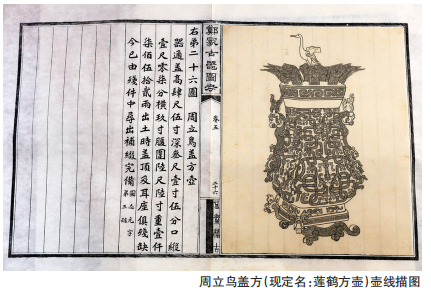 鄭冢古器圖考
卷五
二十六
右弟二十六圖 周立鳥蓋方壺
器通蓋高肆尺伍寸深叄尺壹寸伍分口縱
壹尺零柒分橫玖寸腹圍陸尺陸寸重壹仟
柒佰伍拾貳兩出土時蓋頂及耳座俱殘缺
今已由殘件中尋出補綴完備
周立鸟盖方(现定名:莲鹤方壶)壶线描图